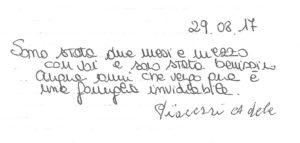 29.08.17
Sono stata due mesi e mezzo
con voi e sono stata benissimo
anni che vengo qua è
una famiglia invidiabile.
Adele